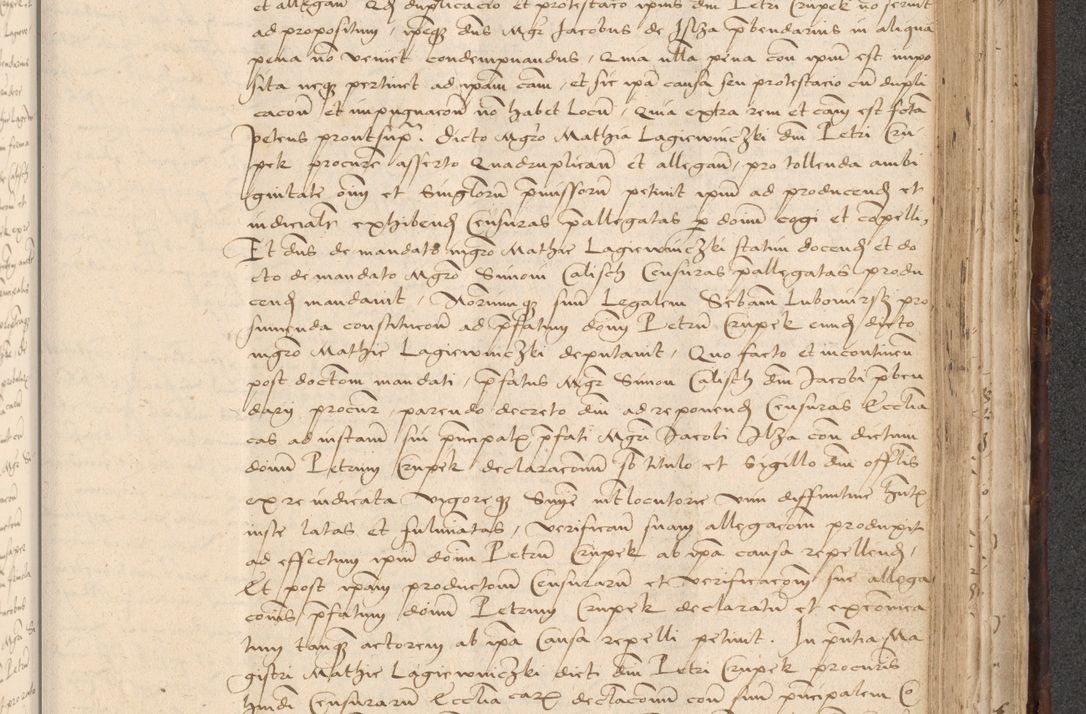 et allegan̄ Qd̄ duplicacio et protestacio ipius dn̄i Petri Crupek nō servit
ad propositum, ipeqz dn̄s Mgr̄ Jacobus de Jlza p̄bendarius in aliqua
pena nō veniet condempnandus, Quia nulla pena con̄ ipm̄ est impo
sita neqz pertinet ad ipam cām, et sic ipā causa seu protestacio cū dupli
cacōn̄ et impugnacōn̄ nō habet Locū, Quia extra rem et cām est fctā
petens prout sup̄. Dicto Mgrō Mathia Lagiewniczki dn̄i Petri Cru
pek procurē asserto Quadruplican̄ et allegan̄, pro tollenda ambi
guitate om̄ et Singlorū p̄missorū petivit ipm̄ ad producend̄ et
iudicialr̄ exhibend̄ Censuras p̄allegatas p domū cogi et cōpelli,
Et dn̄s de mandato mgrō Mathie Lagiewniczki statim docend̄ et do
cto de mandato Mgrō Simoni Calisch Censuras p̄allegatas produ
cend̄ mandavit, Notariumqz suū Legalem Sebam̄ Lubomirsk pro
sumenda constitucōn̄ ad p̄fatum domū Petrū Crupek eund̄ dicto
mgrō Mathie Lagiewniczki deputavit, Quo facto et incontinen̄
post doctom̄ mandati, p̄fatus Mgr̄ Simon Calisch dn̄i Jacobi p̄ben
darii procur̄, parendo decreto dn̄i ad reponend̄ Censuras Ecclia
cas ad instan̄ sui p̄ncipalr̄ p̄fati Mgrī Jacobi Jlza con̄ dictum
domū Petrum Crupek declaracōnū sb titulo et Sigillo dn̄i offlis
ex re iudicata vigoreqz Snīe intlocutorie vim diffinitive hnt̄
iuste latas et fulminatas, verifican̄ suam allegacōm produxit
ad effectum ipm̄ domū Petrū Crupek ab ipā causa repellend̄,
Et post ipam̄ productōm Censurarū et verificacōm sue allega
conis p̄fatum domū Petrum Crupek declaratū et excōmunica
tum tanqz actorem ab ipā Causa repelli petivit. In pn̄tia Ma
gistri Mathie Lagiewniczki dicti dn̄i Petri Crupek procuris
hm̄di Censurarū Ecclia carū declacōnū con̄ suū p̄ncipalem